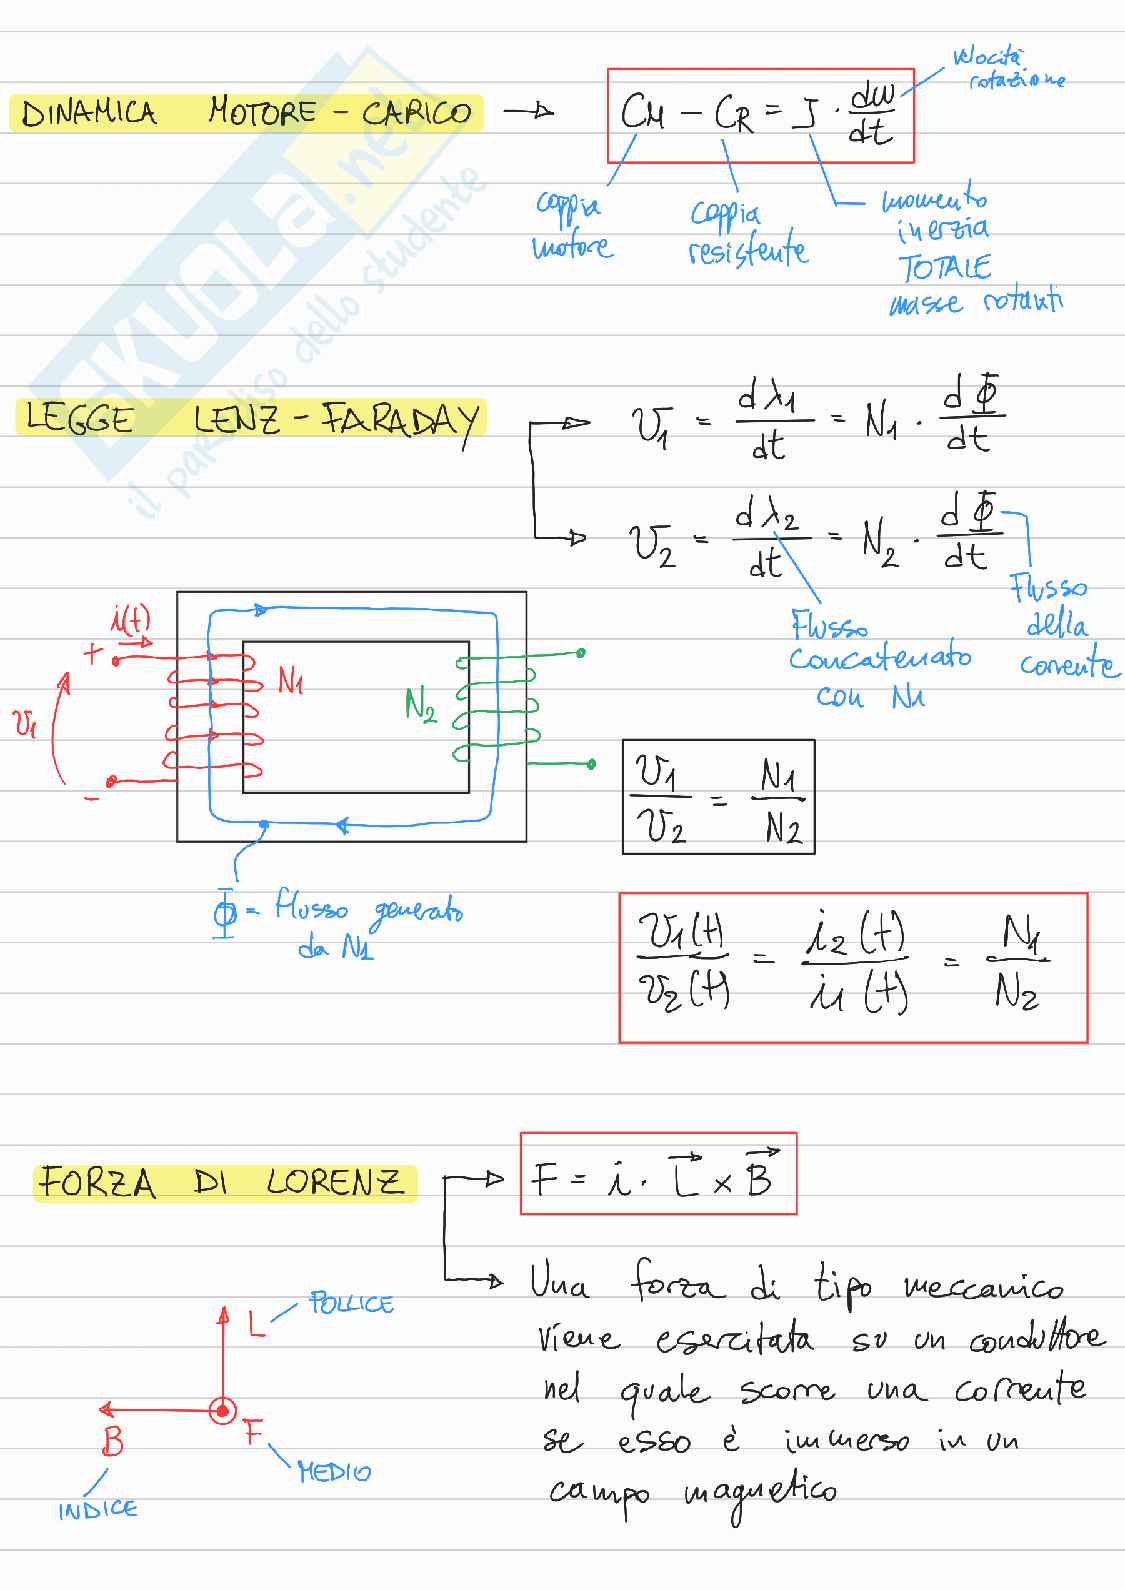 DINAMICA MOTORE - CARICO → CM - CR = J · dω/dt
velocità
rotazione
coppia
motore
coppia
resistente
momento
inerzia
TOTALE
masse rotanti
SKUOLA.net
il paradiso dello studente
LEGGE LENZ - FARADAY
v1 = dλ1/dt = N1 · dΦ/dt
v2 = dλ2/dt = N2 · dΦ/dt
Flusso
concatenato
con N1
Flusso
della
corrente
i(t)
+
N1
N2
v1
-
Φ = flusso generato
da N1
v1/v2 = N1/N2
v1(t)/v2(t) = i2(t)/i1(t) = N1/N2
FORZA DI LORENZ
F = i · L⃗ × B⃗
Una forza di tipo meccanico
viene esercitata su un conduttore
nel quale scorre una corrente
se esso è immerso in un
campo magnetico
L
POLLICE
B
F
INDICE
MEDIO